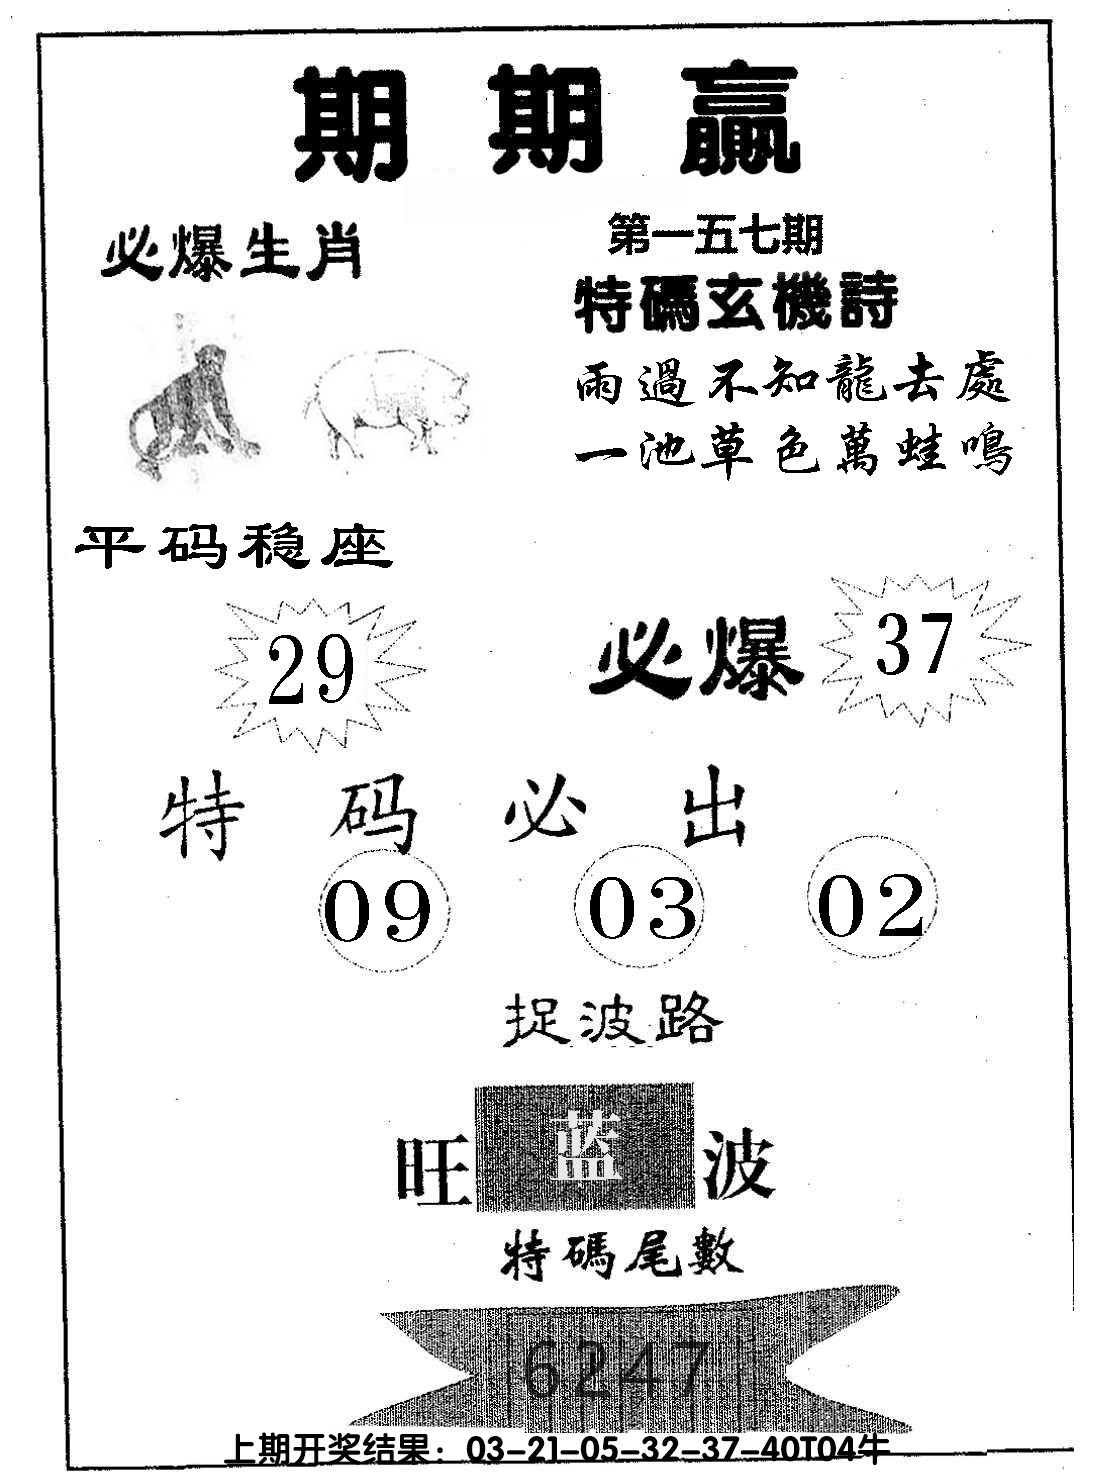 期期赢
必爆生肖
第一五七期
特碼玄機詩
雨過不知龍去處
一池草色萬蛙鳴
平码稳座
29
必爆 37
特码必出
09 03 02
捉波路
旺 蓝 波
特碼尾數
6247
上期开奖结果：03-21-05-32-37-40T04牛